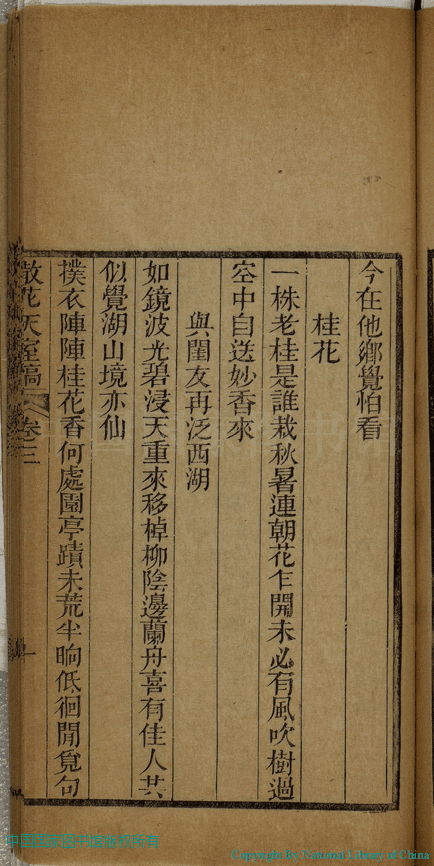 今在他鄉覺怕看
桂花
一株老桂是誰栽秋暑連朝花乍開未必有風吹樹過
空中自送妙香來
與閨友再泛西湖
如鏡波光碧浸天重來移棹柳陰邊蘭舟喜有佳人共
似覺湖山境亦仙
撲衣陣陣桂花香何處園亭蹟未荒半晌低徊閒覓句
散花天室稿 卷三 一
Copyright By National Library of China